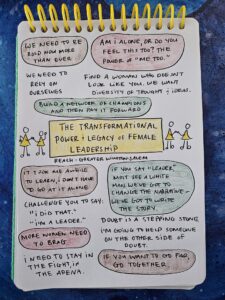 WE NEED TO BE
BOLD NOW MORE
THAN EVER
AM I ALONE, OR DO YOU
FEEL THIS TOO? THE
POWER OF "ME TOO."
WE NEED TO
RELY ON
OURSELVES
FIND A WOMAN WHO DOESN'T
LOOK LIKE YOU. WE WANT
DIVERSITY OF THOUGHT & IDEAS.
BUILD A NETWORK OF CHAMPIONS
AND THEN PAY IT FORWARD
THE TRANSFORMATIONAL
POWER & LEGACY OF FEMALE
LEADERSHIP
REACH - GREATER WINSTON SALEM
IT TOOK ME AWHILE
TO LEARN, I DON'T HAVE
TO GO AT IT ALONE
IF YOU SAY "LEADER"
MOST SEE A WHITE
MAN. WE'VE GOT TO
CHANGE THE NARRATIVE -
WE'VE GOT TO WRITE
THE STORY
CHALLENGE YOU TO SAY:
"I DID THAT."
"I'M A LEADER."
DOUBT IS A STEPPING STONE
I'M GOING TO HELP SOMEONE
ON THE OTHER SIDE OF
DOUBT.
MORE WOMEN NEED
TO BRAG
I NEED TO STAY IN
THE FIGHT, IN
THE ARENA.
IF YOU WANT TO GO FAR,
GO TOGETHER